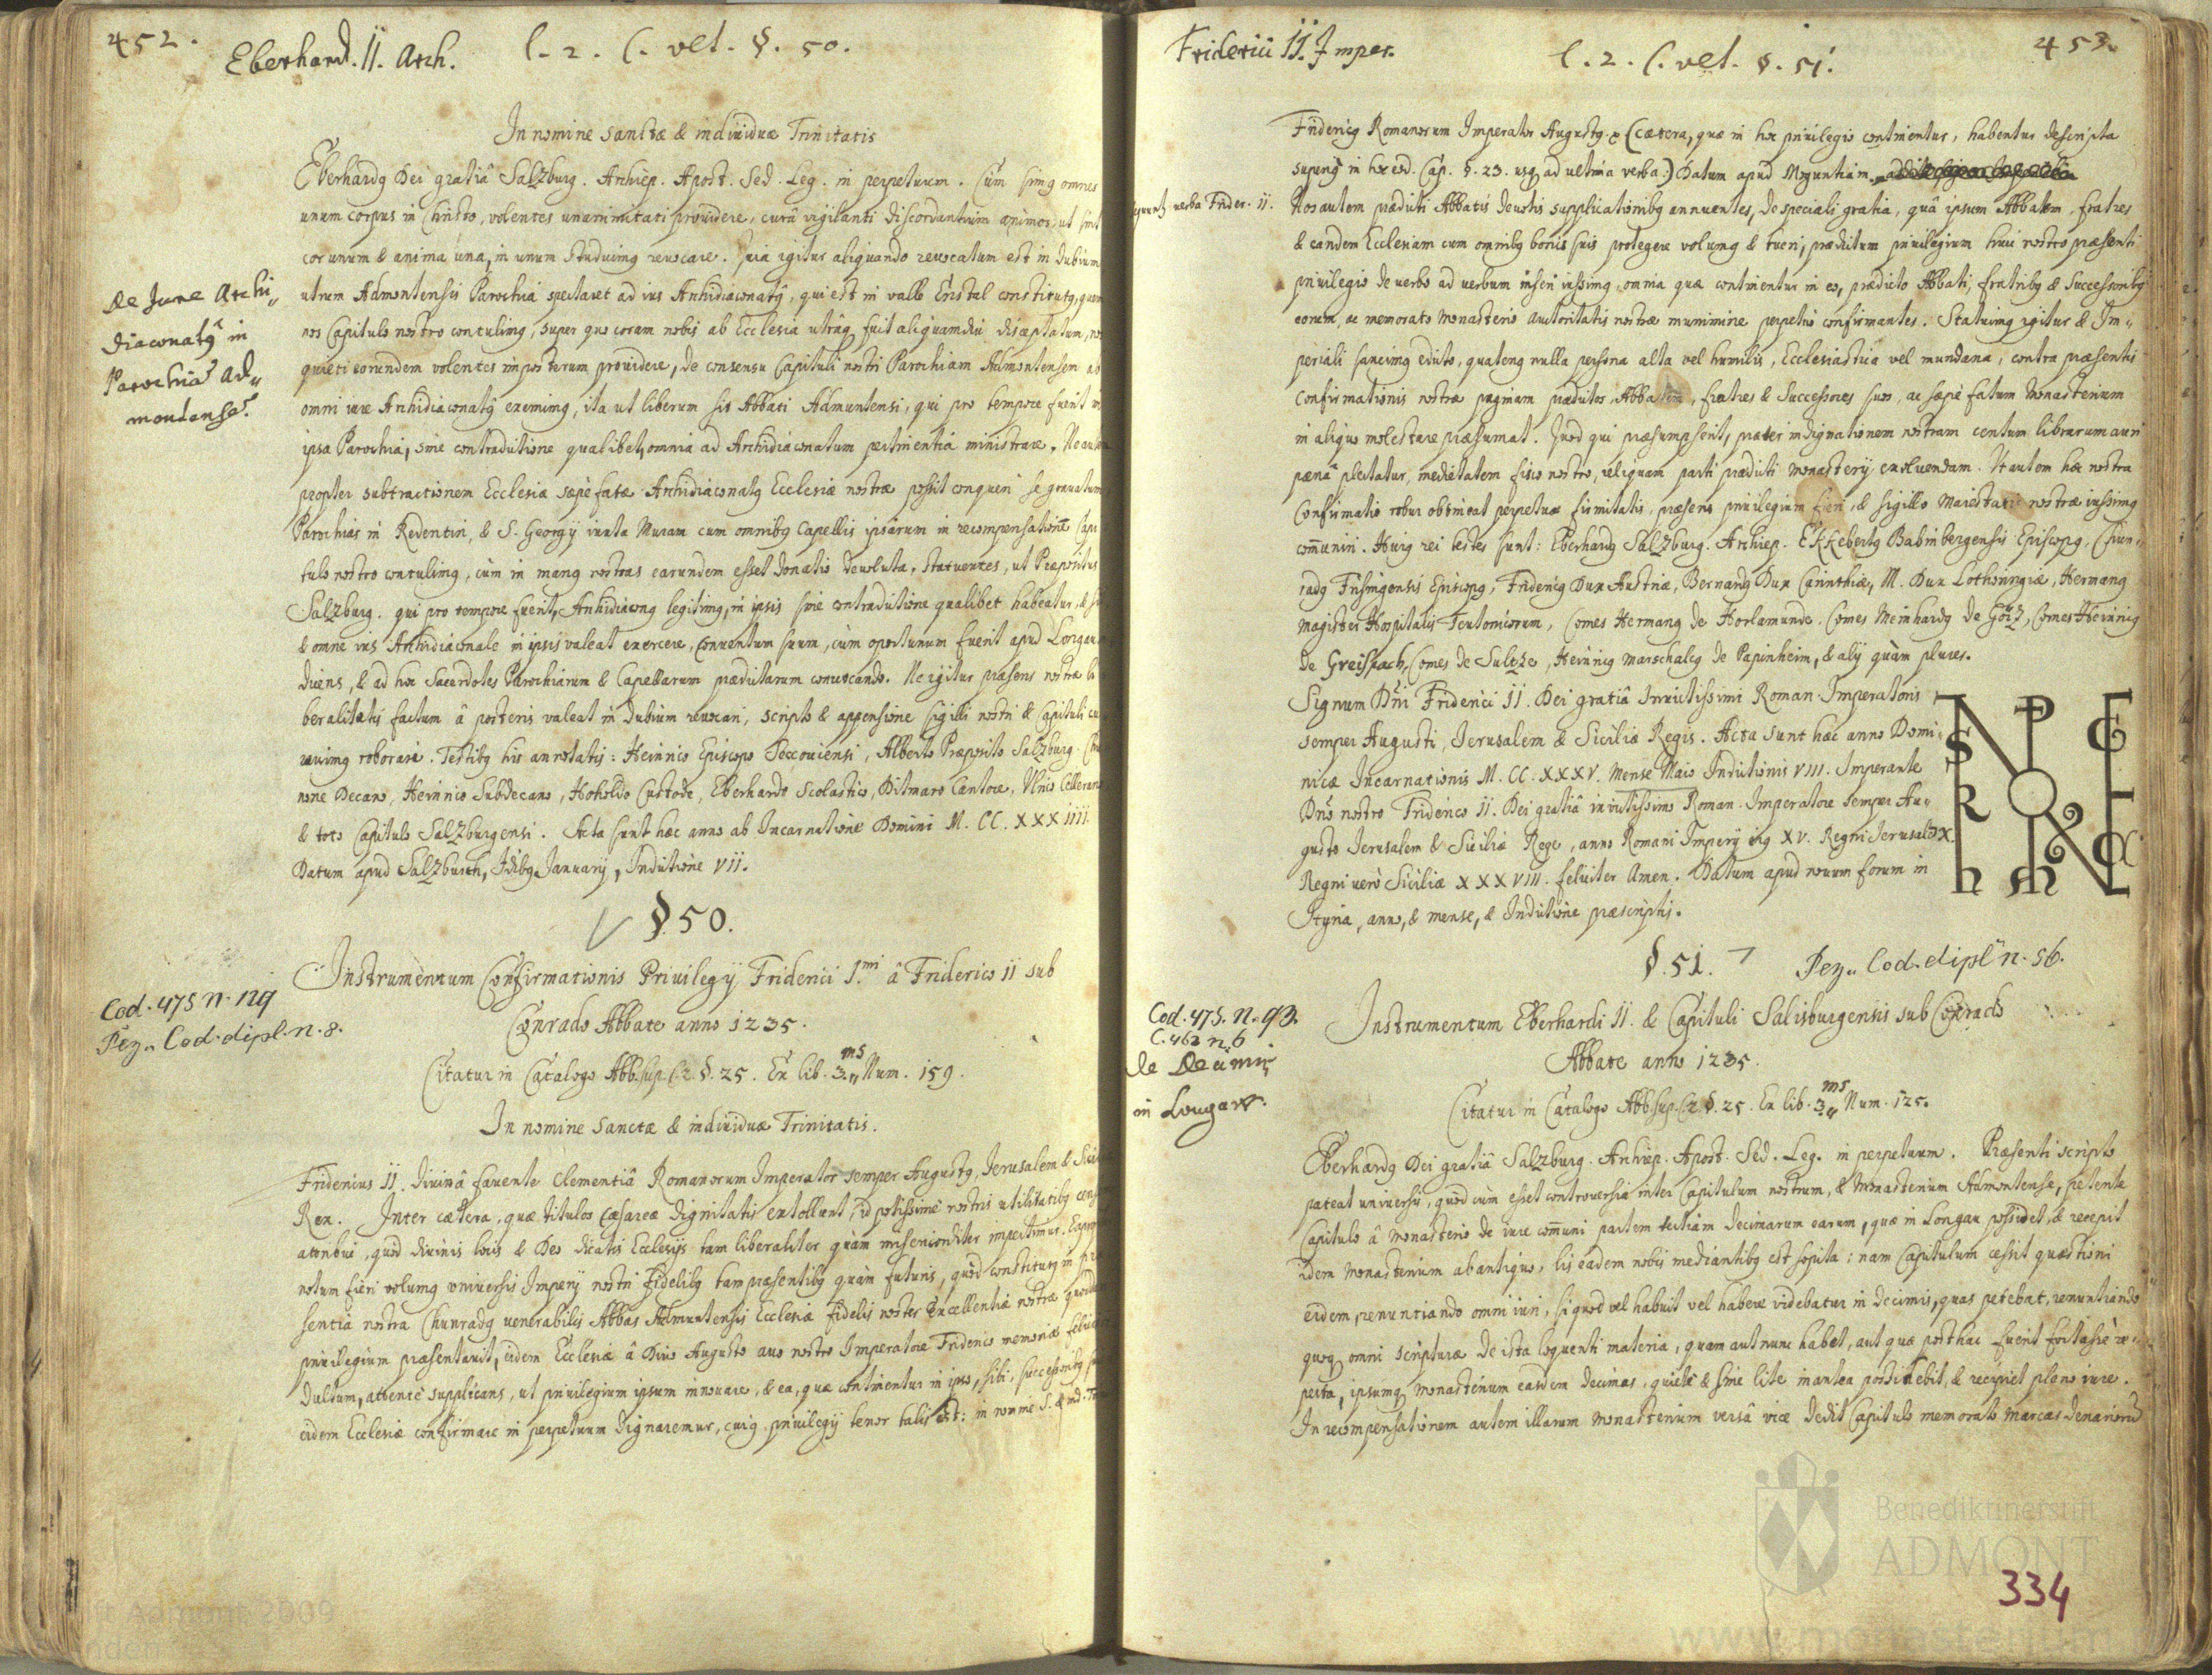 452.
Eberhard. II. Arch.
l. 2. C. vet. §. 50.
In nomine sanctæ & indiuiduæ Trinitatis
Eberhardꝯ Dei gratiâ Salzburg. Archiep. Apost. Sed. Leg. in perpetuum. Cùm simꝯ omnes
unum corpus in Christo, volentes unanimitati prouidere, curâ vigilanti discordantium animos, ut sint
cor unum & anima una, in unum studuimꝯ reuocare. Quia igitur aliquando reuocatum est in dubium
utrum Admontensis Parochia spectaret ad ius Archidiaconatꝯ, qui est in valle Enstal constitutꝯ, quem
nos Capitulo nostro contulimꝯ, super quo coram nobis ab Ecclesia utrâq fuit aliquamdiu disceptatum, nos
quieti eorundem volentes imposterum prouidere, de consensu Capituli nostri Parochiam Admontensem ab
omni iure Archidiaconatꝯ eximimꝯ, ita ut liberum sit Abbati Admuntensi, qui pro tempore fuerit in
ipsa Parochia, sine contradictione qualibet, omnia ad Archidiaconatum pertinentia ministrare. Ne autem
propter subtractionem Ecclesiæ sæpè fatæ Archidiaconatꝯ Ecclesiæ nostræ possit conqueri se grauatum
Parochias in Redentin, & S. Georgij iuxta Muram cum omnibꝯ Capellis ipsarum in recompensatione Capi
tulo nostro contulimꝯ, cùm in manꝯ nostras earundem esset donatio deuoluta, statuentes, ut Præpositus
Salzburg. qui pro tempore fuerit, Archidiaconꝯ legitimꝯ, in ipsis sine contradictione qualibet habeatur, &
& omne ius Archidiaconale in ipsis valeat exercere, Conuentum suum, cùm oportunum fuerit apud Longau
dicens, & ad hoc Sacerdotes Parochiarum & Capellarum prædictarum conuocando. Ne igitur præsens nostræ li
beralitatis factum â posteris valeat in dubium reuocari, scripto & appensione sigilli nostri & Capituli cu
rauimꝯ roborari. Testibꝯ his annotatis: Heinrico Episcopo Seccouiensi, Alberto Præposito Salzburg. Chu
none Decano, Heinrico Subdecano, Hoholdo Custode, Eberhardo Scolastico, Ditmaro Cantore, Vlrico Cellerario
& toto Capitulo Salzburgensi. Acta sunt hæc anno ab Incarnatione Domini M. CC. XXXIIII.
Datum apud Salzburch, Idibꝯ Januarij, Indictione VII.
De Jure Archi„
diaconatꝯ in
Parochia Ad„
montense.
§ 50.
Instrumèntum Confirmationis Priuilegij Friderici I.mi â Friderico II sub
Conrado Abbate anno 1235.
Cod. 475 n. 129
Pez„ Cod. dipl. n. 8.
Citatur in Catalogo Abb. sup. C. 2. §. 25. Ex lib. 3.„ ms Num. 159.
In nomine Sanctæ & indiuiduæ Trinitatis.
Fridericus II. Diuinâ fauente Clementiâ Romanorum Imperator semper Augustꝯ, Jerusalem & Sici
Rex. Inter cætera, quæ titulos Cæsareæ dignitatis extollunt, id potissimè nostris utilitatibꝯ
attribui, quod diuinis locis & Deo dicatis Ecclesijs tam liberaliter quàm misericorditer impertimur.
notum fieri volumꝯ vniuersis Imperij nostri fidelibꝯ tam præsentibꝯ quàm futuris, quòd constitutꝯ in præ
sentia nostra Chunradꝯ venerabilis Abbas Admuntensis Ecclesiæ fidelis noster Excellentiæ nostræ
priuilegium præsentauit, eidem Ecclesiæ â Diuo Augusto auo nostro Imperatore Friderico memoriæ
dultum, attentè supplicans, ut priuilegium ipsum innouare, & ea, quæ continentur in ipso, sibi, successoribꝯ
eidem Ecclesiæ confirmare in perpetuum dignaremur, cuiꝯ priuilegij tenor talis est: in nomine S. & ind. T
Friderici II. Imper.
l. 2. C. vet. §. 51.
453.
Fridericꝯ Romanorum Imperator Augustꝯ. (Cætera, quæ in hoc priuilegio continentur, habentur descripta
superiꝯ in hoc eod. Cap. §. 23. usq ad ultima verba:) Datum apud Moguntiam.
verba Frider. II. Nos autem prædicti Abbatis deuotis supplicationibꝯ annuentes, de speciali gratia, quâ ipsum Abbatem, fratres
& eandem Ecclesiam cum omnibꝯ bonis suis protegere volumꝯ & tueri, prædictum priuilegium huic nostro præsenti
priuilegio de verbo ad verbum inseri iussimꝯ, omnia quæ continentur in eo, prædicto Abbati, fratribꝯ & Successoribꝯ
eorum, ac memorato Monasterio auctoritatis nostræ munimine perpetuò confirmantes. Statuimꝯ igitur & Im„
periali sancimꝯ edicto, quatenꝯ nulla persona alta vel humilis, Ecclesiastica vel mundana, contra præsentis
Confirmationis nostræ paginam prædictos Abbatem, fratres & Successores suos, ac sæpè fatum Monasterium
in aliquo molestare præsumat. Quod qui præsumpserit, præter indignationem nostram centum librarum auri
pœnâ plectatur, medietatem fisco nostro, reliquam parti prædicti Monasterij exoluendam. Ut autem hæc nostra
Confirmatio robur obtineat perpetuæ firmitatis, præsens priuilegium fieri, & sigillo Maiestatis nostræ iussimꝯ
com̄uniri. Huiꝯ rei testes sunt: Eberhardꝯ Salzburg. Archiep. Ekkebertꝯ Babinbergensis Episcopꝯ, Chun„
radꝯ Frisingensis Episcopꝯ, Fridericꝯ Dux Austriæ, Bernardꝯ Dux Carinthiæ, M. Dux Lothoringiæ, Hermanꝯ
Magister Hospitalis Teutonicorum, Comes Hermanꝯ de Horlamunde, Comes Meinhardꝯ de Görz, Comes Heinricꝯ
de Greispach, Comes de Sultze, Heinricꝯ Marschalcꝯ de Papinheim, & alij quàm plures.
Signum Dn̄i Friderici II. Dei gratiâ Inuictissimi Roman. Imperatoris
semper Augusti, Jerusalem & Siciliæ Regis. Acta sunt hæc anno Domi„
nicæ Incarnationis M. CC. XXXV. Mense Maio Indictionis VIII. Imperante
Dn̄o nostro Friderico II. Dei gratiâ inuictissimo Roman. Imperatore semper Au„
gusto Jerusalem & Siciliæ Rege, anno Romani Imperij eiꝯ XV. Regni Jerusalē X.
Regni verò Siciliæ XXXVIII. feliciter Amen. Datum apud nouum forum in
Styria, anno, & mense, & Indictione præscriptis.
§. 51.
Pez„ Cod. dipl. n. 56.
Cod. 475. n. 93.
C. 462 n. 6
de Decimis
in Longaw.
Instrumentum Eberhardi II. & Capituli Salisburgensis sub Conrado
Abbate anno 1235.
Citatur in Catalogo Abb. sup. C. 2. §. 25. Ex lib. 3.„ ms Num. 125.
Eberhardꝯ Dei gratiâ Salzburg. Archiep. Apost. Sed. Leg. in perpetuum. Præsenti scripto
pateat vniuersis, quòd cùm esset controuersia inter Capitulum nostrum, & Monasterium Admontense, petente
Capitulo â Monasterio de iure com̄uni partem tertiam decimarum earum, quæ in Longau possidet, & recepit
idem Monasterium ab antiquo, lis eadem nobis mediantibꝯ est sopita: nam Capitulum cessit quæstioni
eidem, renuntiando omni iuri, si quod vel habuit vel habere videbatur in decimis, quas petebat, renuntiando
quoq omni scripturæ de ista loquenti materia, quam aut nunc habet, aut quæ posthac fuerit fortassè re„
perta, ipsumq Monasterium easdem decimas, quietè & sine lite in antea possidebit, & recipiet pleno iure.
In recompensationem autem illarum Monasterium versâ vice dedit Capitulo memorato marcas denariorū
Benediktinerstift
ADMONT
334
ift Admont 2009
www.monasterium